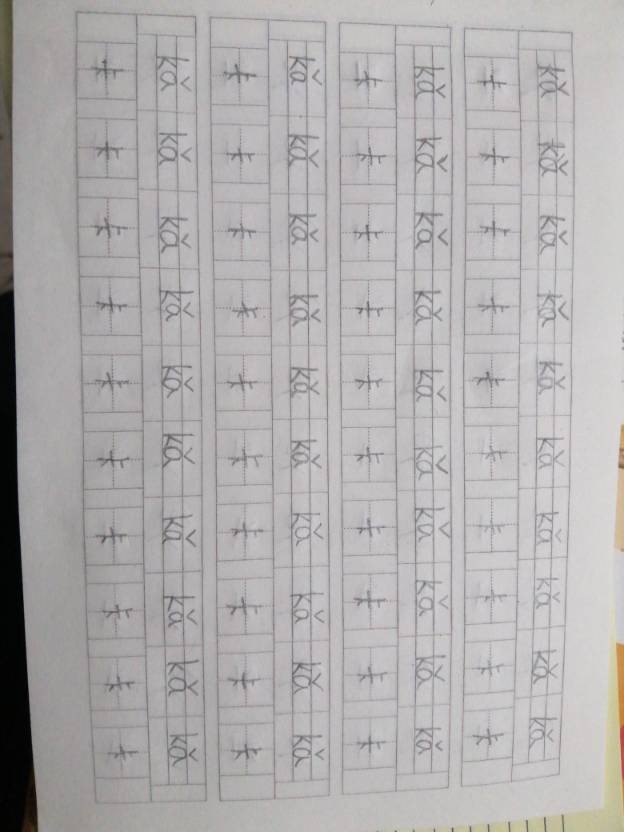 kǎ kǎ kǎ kǎ kǎ kǎ kǎ kǎ kǎ kǎ
卡 卡 卡 卡 卡 卡 卡 卡 卡 卡
kǎ kǎ kǎ kǎ kǎ kǎ kǎ kǎ kǎ kǎ
卡 卡 卡 卡 卡 卡 卡 卡 卡 卡
kǎ kǎ kǎ kǎ kǎ kǎ kǎ kǎ kǎ kǎ
卡 卡 卡 卡 卡 卡 卡 卡 卡 卡
kǎ kǎ kǎ kǎ kǎ kǎ kǎ kǎ kǎ kǎ
卡 卡 卡 卡 卡 卡 卡 卡 卡 卡